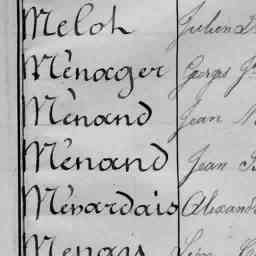 Meloh Julien
Ménager Georges
Ménand Jean
Ménand Jean
Ménardais Alexand